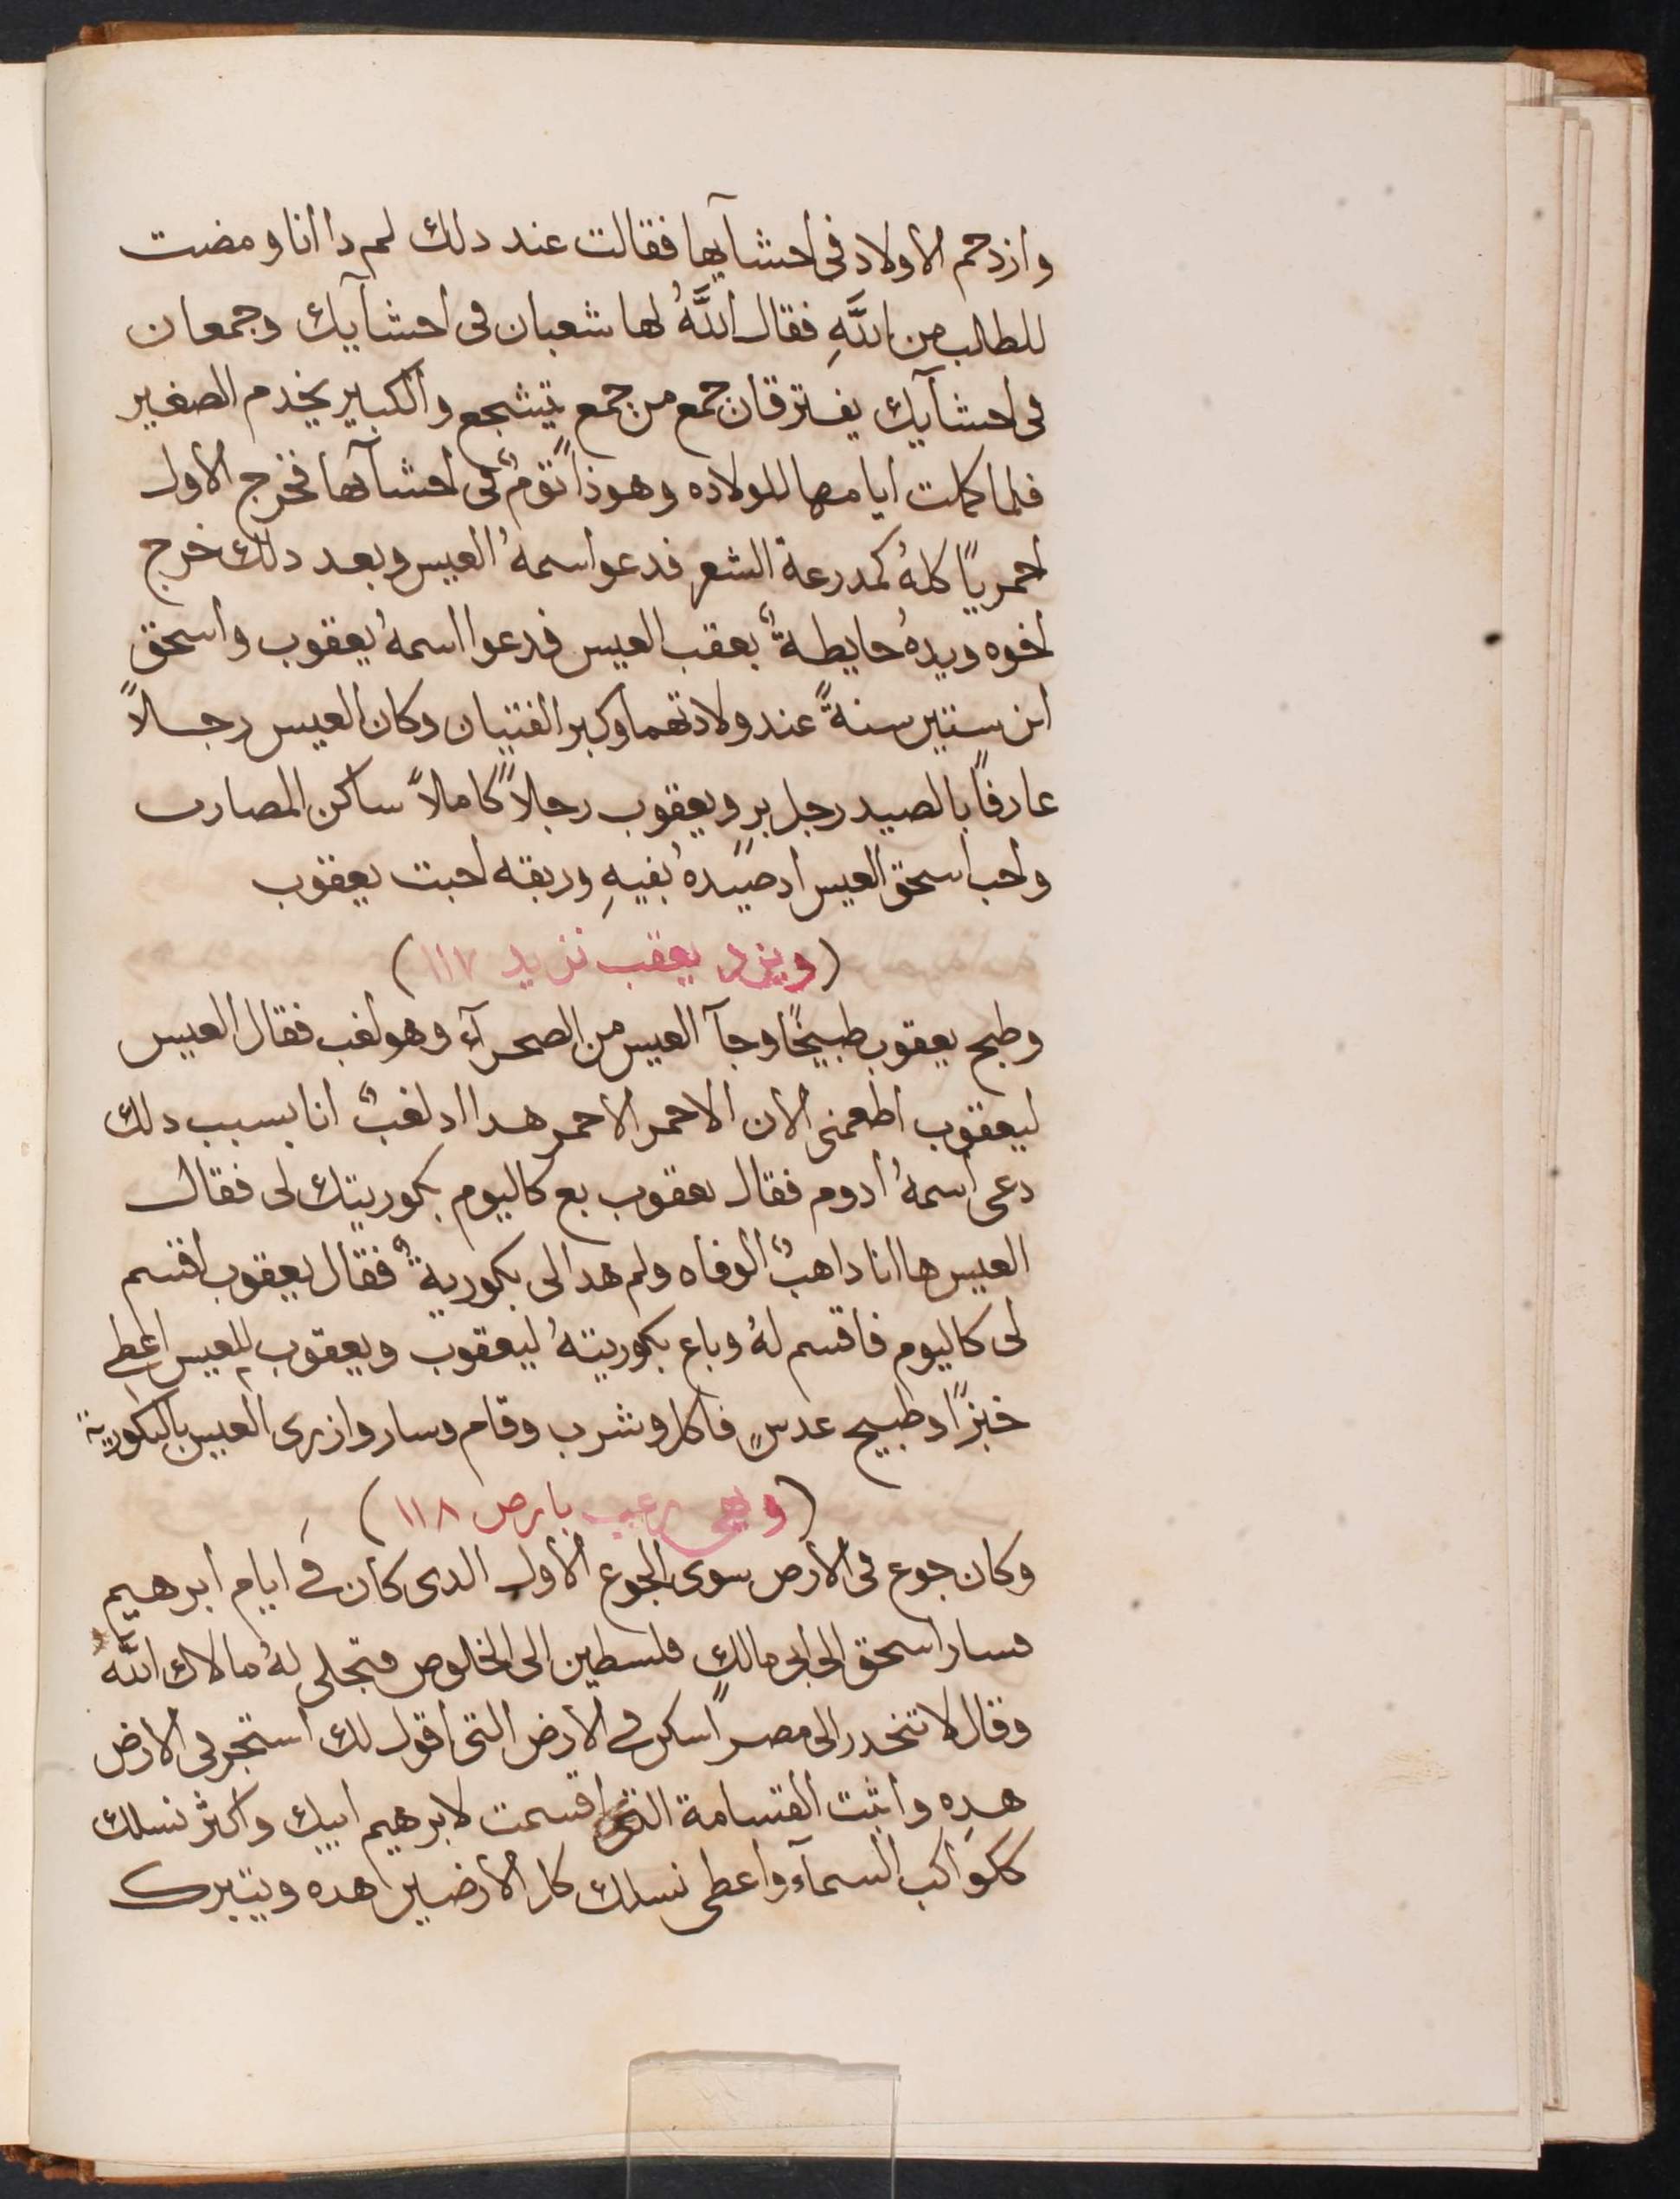 وازدحم الاولاد فى احشآيها فقالت عند دلك لم دا انا ومضت
للطالب من اللَّهِ فقال اللَّهُ لها شعبان فى احشآيك وجمعان
فى احشآيك يفترقان جمع من جمع يتشجع والكبير يخدم الصغير
فلما كملت ايامها للولاده وهوذا تؤمٌ فى احشآها فخرج الاول
احمريًا كلهُ كمدرعة الشعر فدعوا سمهُ العيس وبعد دلك خرج
اخوه ويدهُ حايطةٌ بعقب العيس فدعوا اسمهُ يعقوب واسحق
ابن ستين سنةً عند ولادتهما وكبر الفتيان وكان العيس رجلاً
عارفًا بالصيد رجل برٍ ويعقوب رجلاً كاملاً ساكن المضارب
واحب اسحق العيس اد صيدهُ بفيهِ وربقه احبت يعقوب
(ويزد يعقب نزيد ١١٧)
وطبح يعقوب طبيخًا وجآ العيس من الصحرآء وهو لغب فقال العيس
ليعقوب اطعمنى الان الاحمر الاحمر هدا اد لغبٌ انا بسبب دلك
دعى اسمهُ ادوم فقال يعقوب بع كاليوم بكوريتك لى فقال
العيس هاانا داهبٌ الوفاه ولم هدا لى بكوريةٌ فقال يعقوب اقسم
لى كاليوم فاقسم لهُ وباع بكوريتهُ ليعقوب ويعقوب للعيس اعطى
خبزًا وطبيح عدسٍ فاكل وشرب وقام وسار وازرى العيس بالبكورية
(ويهى رعب بارص ١١٨)
وكان جوع فى الارض سوى الجوع الاول الدى كان فى ايام ابرهيم
فسار اسحق الى ابى مالك فلسطين الى الخلوص فتجلى لهُ ملاك اللَّه
وقال لا تنحدر الى مصر اسكن فى الارض التى اقول لك استجر فى الارض
هدِهِ واثبت القسامة التى اقسمت لابرهيم ابيك واكثر نسلك
ككواكب السمآء واعطى نسلك كل الارضين هده ويتبرك